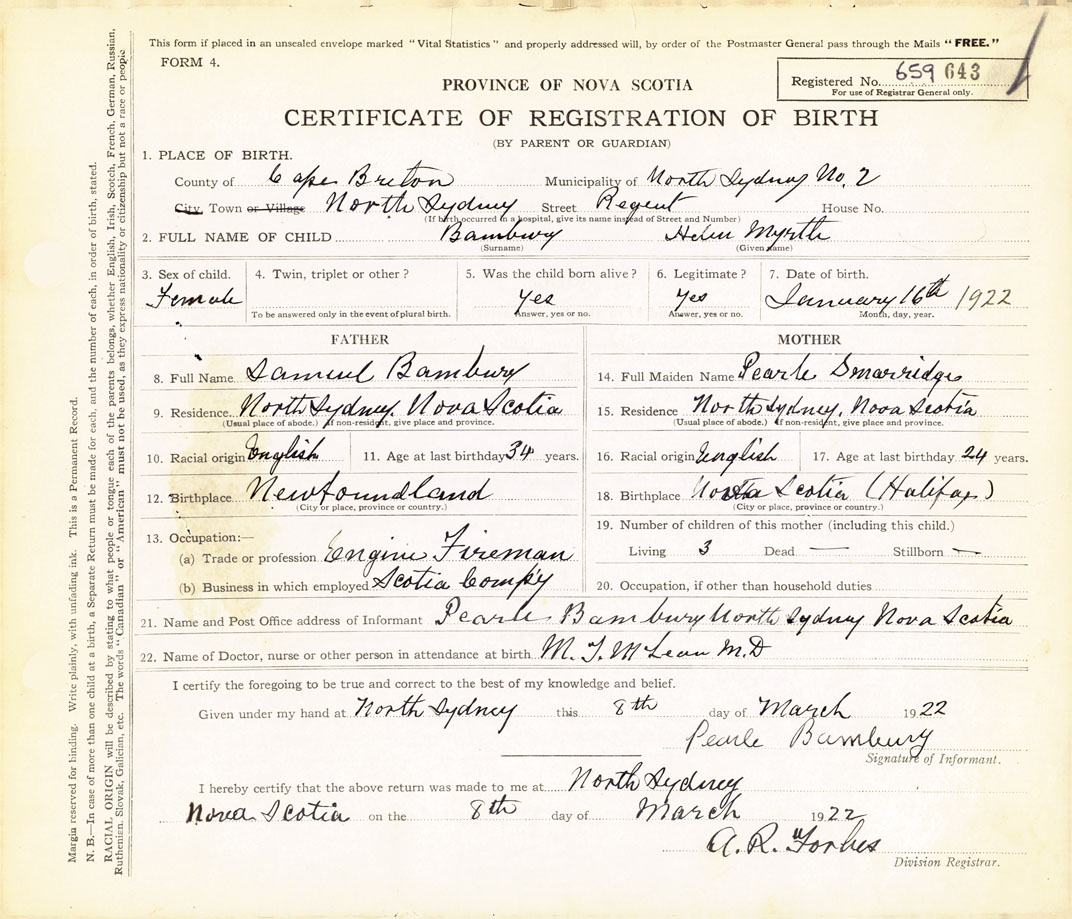 This form if placed in an unsealed envelope marked "Vital Statistics" and properly addressed will, by order of the Postmaster General pass through the Mails "FREE."
FORM 4.
PROVINCE OF NOVA SCOTIA
Registered No. 659 643
For use of Registrar General only.
CERTIFICATE OF REGISTRATION OF BIRTH
(BY PARENT OR GUARDIAN)
1. PLACE OF BIRTH.
County of Cape Breton Municipality of North Sydney No. 2
City, Town or Village North Sydney Street Regent House No.
(If birth occurred in a hospital, give its name instead of Street and Number)
2. FULL NAME OF CHILD Bambury Helen Myrtle
(Surname) (Given name)
3. Sex of child. 4. Twin, triplet or other? 5. Was the child born alive? 6. Legitimate? 7. Date of birth.
Female Yes Yes January 16th 1922
To be answered only in the event of plural birth. Answer, yes or no. Answer, yes or no. Month, day, year.
FATHER MOTHER
8. Full Name Samuel Bambury 14. Full Maiden Name Pearle Smarridge
9. Residence North Sydney, Nova Scotia 15. Residence North Sydney, Nova Scotia
(Usual place of abode.) If non-resident, give place and province. (Usual place of abode.) If non-resident, give place and province.
10. Racial origin English 11. Age at last birthday 34 years. 16. Racial origin English 17. Age at last birthday 24 years.
12. Birthplace Newfoundland 18. Birthplace Nova Scotia (Halifax)
(City or place, province or country.) (City or place, province or country.)
13. Occupation:— 19. Number of children of this mother (including this child.)
(a) Trade or profession Engine Fireman Living 3 Dead — Stillborn —
(b) Business in which employed Scotia Comp'y 20. Occupation, if other than household duties
21. Name and Post Office address of Informant Pearle Bambury North Sydney Nova Scotia
22. Name of Doctor, nurse or other person in attendance at birth M. T. McLean M.D
I certify the foregoing to be true and correct to the best of my knowledge and belief.
Given under my hand at North Sydney this 8th day of March 1922
Pearle Bambury
Signature of Informant.
I hereby certify that the above return was made to me at North Sydney
Nova Scotia on the 8th day of March 1922
A. R. Forbes
Division Registrar.
Margin reserved for binding. Write plainly, with unfading ink. This is a Permanent Record.
N. B.—In case of more than one child at a birth, a Separate Return must be made for each, and the number of each, in order of birth, stated.
RACIAL ORIGIN will be described by stating to what people or tongue each of the parents belongs, whether English, Irish, Scotch, French, German, Russian,
Ruthenian, Slovak, Galician, etc. The words "Canadian" or "American" must not be used, as they express nationality or citizenship but not a race or people